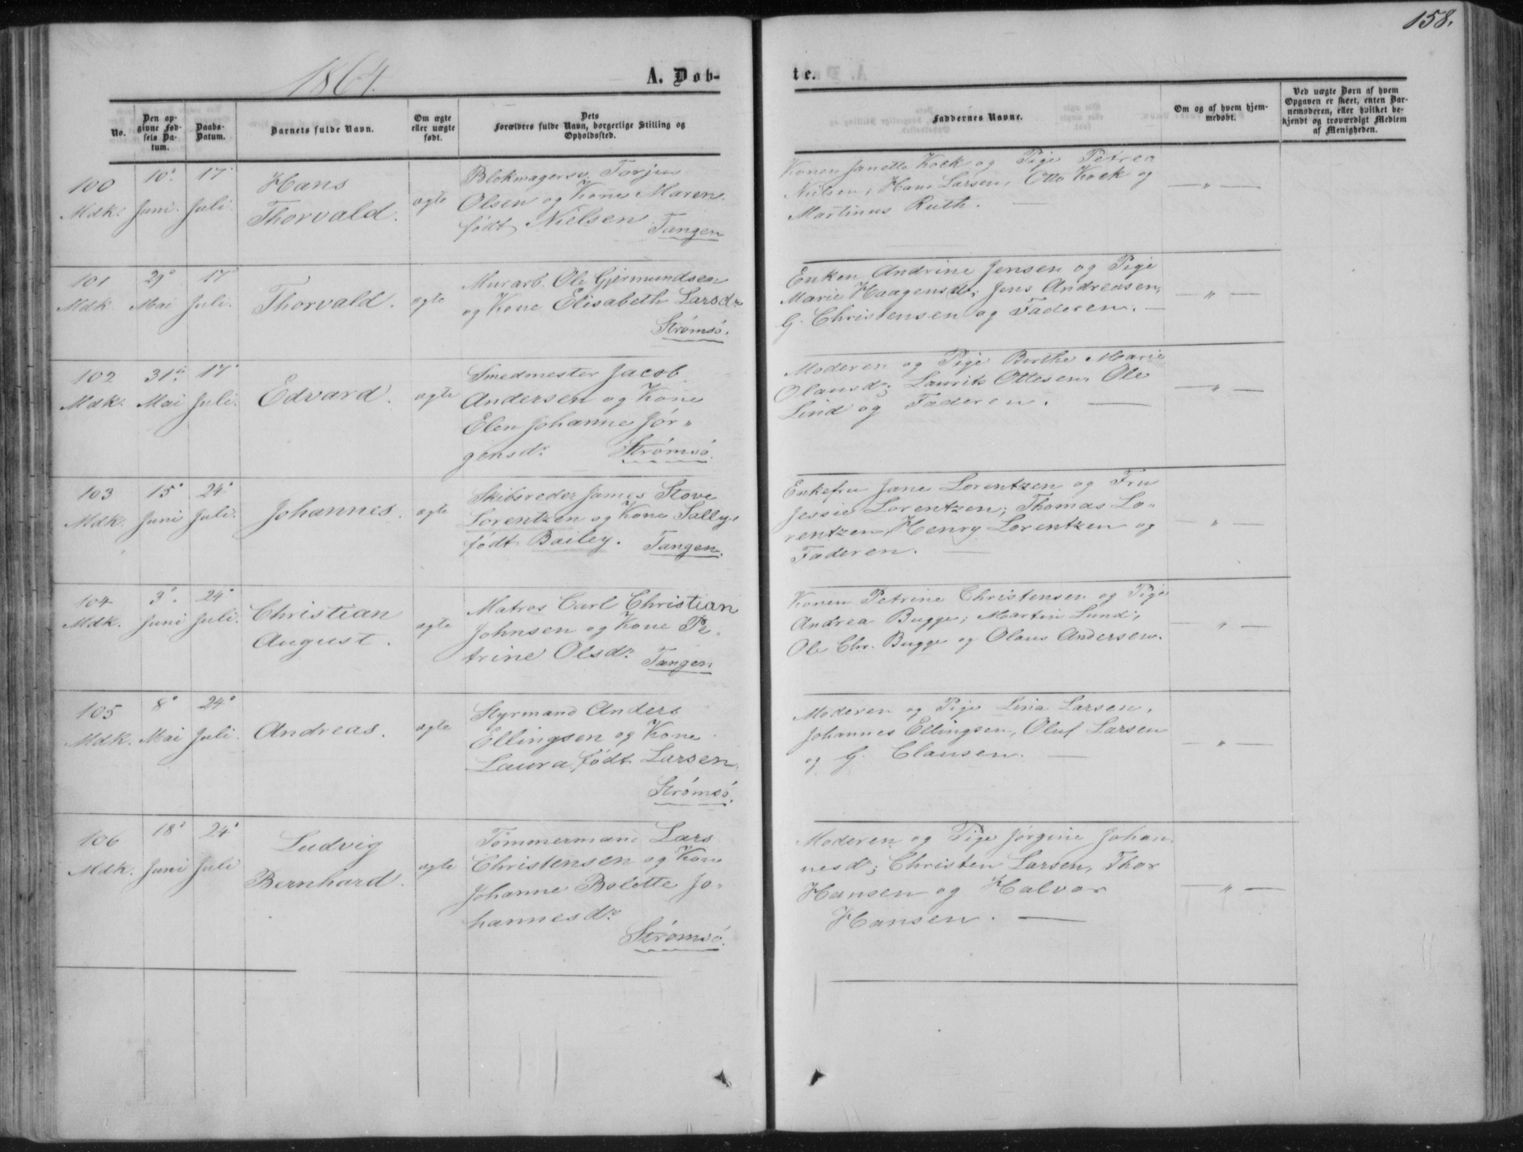 158.
1864.
A. Døb-
te.
No.
Den op-
givne Fød-
sels Da-
tum.
Daabs-
Datum.
Barnets fulde Navn.
Om ægte
eller uægte
født.
Dets
Forældres fulde Navn, borgerlige Stilling og
Opholdssted.
Faddernes Navne.
Om og af hvem hjem-
medøbt.
Ved uægte Børn af hvem
Opgaven er skeet, enten Bar-
nemoderen, eller hvilket be-
kjendt og troværdigt Medlem
af Menigheden.
100
Mdk.
10.
Juni.
17
Juli
Hans
Thorvald.
ægte
Blokmagersv. Torjus
Olsen og Kone Maren
født Nielsen
Tangen
Konen Janette Kock og Pige Petrea
Nielsen, Hans Larsen, Otto Kock og
Martinus Ruth. —
— " —
101
Mdk
29
Mai
17
Juli.
Thorvald.
ægte
Murarb. Ole Gjermundsen
og Kone Elisabeth Larsdr
Strømsø.
Enken Andrine Jensen og Pige
Marie Haagensdr; Jens Andreasen,
G. Christensen og Faderen. —
— " —
102
Mdk.
31
Mai
17
Juli.
Edvard.
ægte
Smedmester Jacob
Andersen og Kone
Elen Johanne Jør-
gensdr.
Strømsø.
Moderen og Pige Berthe Marie
Olausdr; Laurits Ottesen, Ole
Lind og Faderen. —
— " —
103
Mdk.
15
Juni
24
Juli.
Johannes.
ægte
Skibsreder James Stove
Lorentzen og Kone Sally,
født Bailey.
Tangen.
Enkefru Jane Lorentzen og Fru
Jessie Lorentzen; Thomas Lo-
rentzen, Henry Lorentzen og
Faderen. —
— "
104
Mdk.
3.
Juni
24
Juli.
Christian
August.
ægte
Matros Carl Christian
Johnsen og Kone Pe-
trine Olsdr.
Tangen
Konen Petrine Christensen og Pige
Andrea Bugge; Martin Lund,
Ole Chr. Bugge og Olaus Andersen.
— " —
105
Mdk.
8
Mai
24
Juli.
Andreas.
ægte
Styrmand Anders
Ellingsen og Kone
Laura, født Larsen,
Strømsø.
Moderen og Pige Lina Larsen,
Johannes Ellingsen, Oluf Larsen
og G. Clausen. —
— " —
106
Mdk.
18
Juni
24
Juli
Ludvig
Bernhard.
ægte
Tømmermand Lars
Christensen og Kone
Johanne Bolette Jo-
hannesdr
Strømsø.
Moderen og Pige Jørgine Johan
nesd; Christen Larsen, Thor
Hansen og Halvor
Hansen. —
— " —